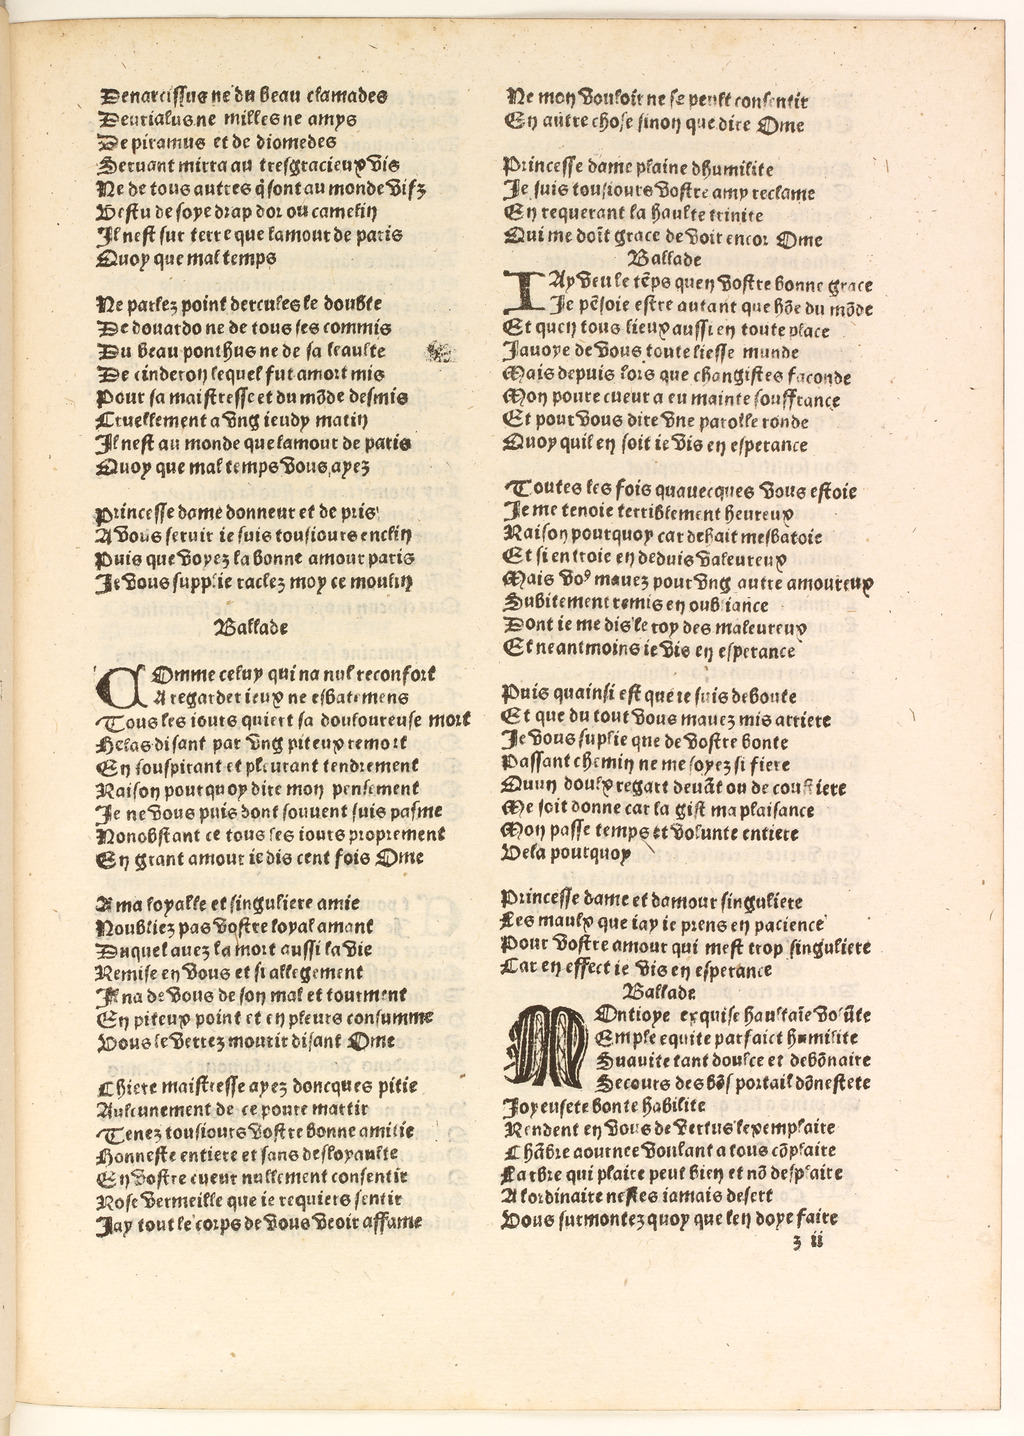 Denarcissus ne du beau clamades
Deurialus ne milles ne amys
De piramus et de diomedes
Seruant mirra au tresgracieux vis
Ne de tous autres q̃ sont au monde vifz
Vestu de soye drap dor ou camelin
Il nest sur terre que lamour de paris
Quoy que mal temps
Ne parlez point dercules le double
De douardo ne de tous ses commis
Du beau ponthus ne de sa leaulte
De cinderon lequel fut a mort mis
Pour sa maistresse et du mõde desmis
Cruellement a vng ieudy matin
Il nest au monde que lamour de paris
Quoy que mal temps vous ayez
Princesse dame donneur et de pris
A vous seruir ie suis tousiours enclin
Puis que voyez la bonne amour paris
Je vous supplie raclez moy ce moulin
Ballade
COmme celuy qui na nul reconfort
A regarder ieux ne esbatemens
Tous les iours quiert sa douloureuse mort
Helas disant par vng piteux remort
En souspirant et pleurant tendrement
Raison pourquoy dire mon pensement
Je ne vous puis dont souuent suis pasme
Nonobstant ce tous les iours proprement
En grant amour ie dis cent fois Ome
A ma loyalle et singuliere amie
Noubliez pas vostre loyal amant
Duquel auez la mort aussi la vie
Remise en vous et si allegement
Il na de vous de son mal et tourment
En piteux point et en pleurs consumme
Vous le verrez mourir disant Ome
Chiere maistresse ayez doncques pitie
Aulcunement de ce poure martir
Tenez tousiours vostre bonne amitie
Honneste entiere et sans desloyaulte
En vostre cueur nullement consentir
Rose vermeille que ie requiers sentir
Jay tout le corps de vous veoir affame
Ne mon vouloir ne se peult consentir
En autre chose sinon que dire Ome
Princesse dame plaine dhumilite
Je suis tousiours vostre amy reclame
En requerant la haulte trinite
Qui me doit grace de voir encor Ome
Ballade
IAy veu le tẽps quen vostre bonne grace
Je pẽsoie estre autant que hõe du mõde
Et quen tous lieux aussi en toute place
Jauoye de vous toute liesse munde
Mais depuis lors que changistes faconde
Mon poure cueur a eu mainte souffrance
Et pour vous dire vne parolle ronde
Quoy quil en soit ie vis en esperance
Toutes les fois quauecques vous estoie
Je me tenoie terriblement heureux
Raison pourquoy car dehait mesbatoie
Et si entroie en deduis valeureux
Mais vo⁹ mauez pour vng autre amoureux
Subitement remis en oubliance
Dont ie me dis le roy des maleureux
Et neantmoins ie vis en esperance
Puis quainsi est que ie suis deboute
Et que du tout vous mauez mis arriere
Je vous suplie que de vostre bonte
Passant chemin ne me soyez si fiere
Quun doulx regart deuãt ou de coustiere
Me soit donne car la gist ma plaisance
Mon passe temps et volunte entiere
Vela pourquoy
Princesse dame et damour singuliere
Les maulx que iay ie prens en pacience
Pour vostre amour qui mest trop singuliere
Car en effect ie vis en esperance
Ballade
MOntioye exquise haultaie volũte
Emple equite parfaict humilite
Suauite tant doulce et debõnaire
Secours des bõs portail dõnestete
Joyeusete bonte habilite
Rendent en vous de vertus lexemplaire
Chãbre aournee voulant a tous cõplaire
Larbre qui plaire peut bien et nõ desplaire
A lordinaire nestes iamais desert
Vous surmontez quoy que len doye faire
z ii